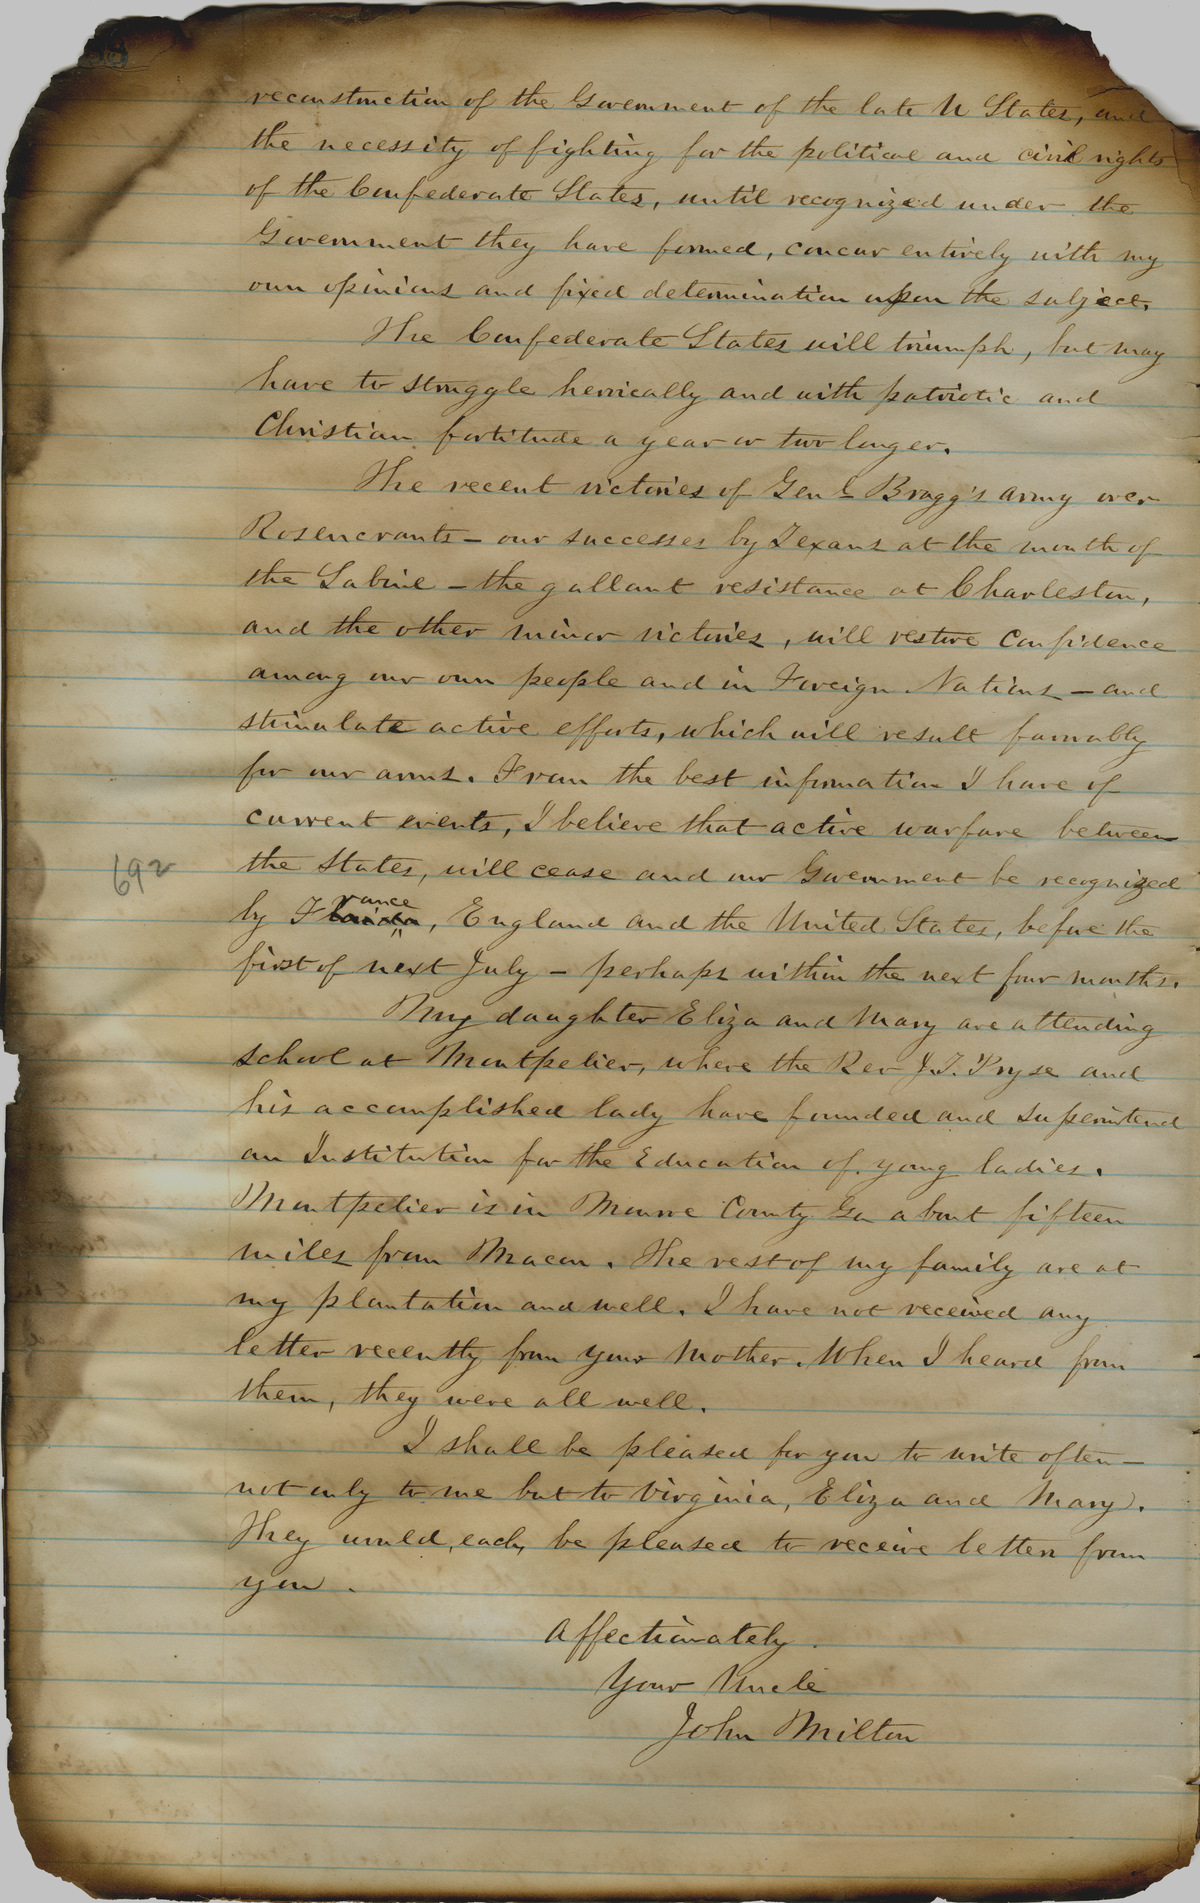 reconstruction of the Government of the late U States, and
the necessity of fighting for the political and civil rights
of the Confederate States, until recognized under the
Government they have formed, concur entirely with my
own opinions and fixed determination upon the subject.
The Confederate States will triumph, but may
have to struggle heroically and with patriotic and
Christian fortitude a year or two longer.
The recent victories of Genl Bragg's army over
Rosencrants – our successes by Texans at the mouth of
the Sabine – the gallant resistance at Charleston,
and the other minor victories, will restore confidence
among our own people and in Foreign Nations – and
stimulate active efforts, which will result favorably
for our arms. From the best information I have of
current events, I believe that active warfare between
the States, will cease and our Government be recognized
692
by France, England and the United States, before the
first of next July – perhaps within the next four months.
My daughter Eliza and Mary are attending
school at Montpelier, where the Rev J.T. Pryse and
his accomplished lady have founded and superintend
an Institution for the Education of young ladies.
Montpelier is in Monroe County Ga about fifteen
miles from Macon. The rest of my family are at
my plantation and well. I have not received any
letter recently from your Mother. When I heard from
them, they were all well.
I shall be pleased for you to write often –
not only to me but to Virginia, Eliza and Mary.
They would, each, be pleased to receive letters from
you.
Affectionately
Your Uncle
John Milton